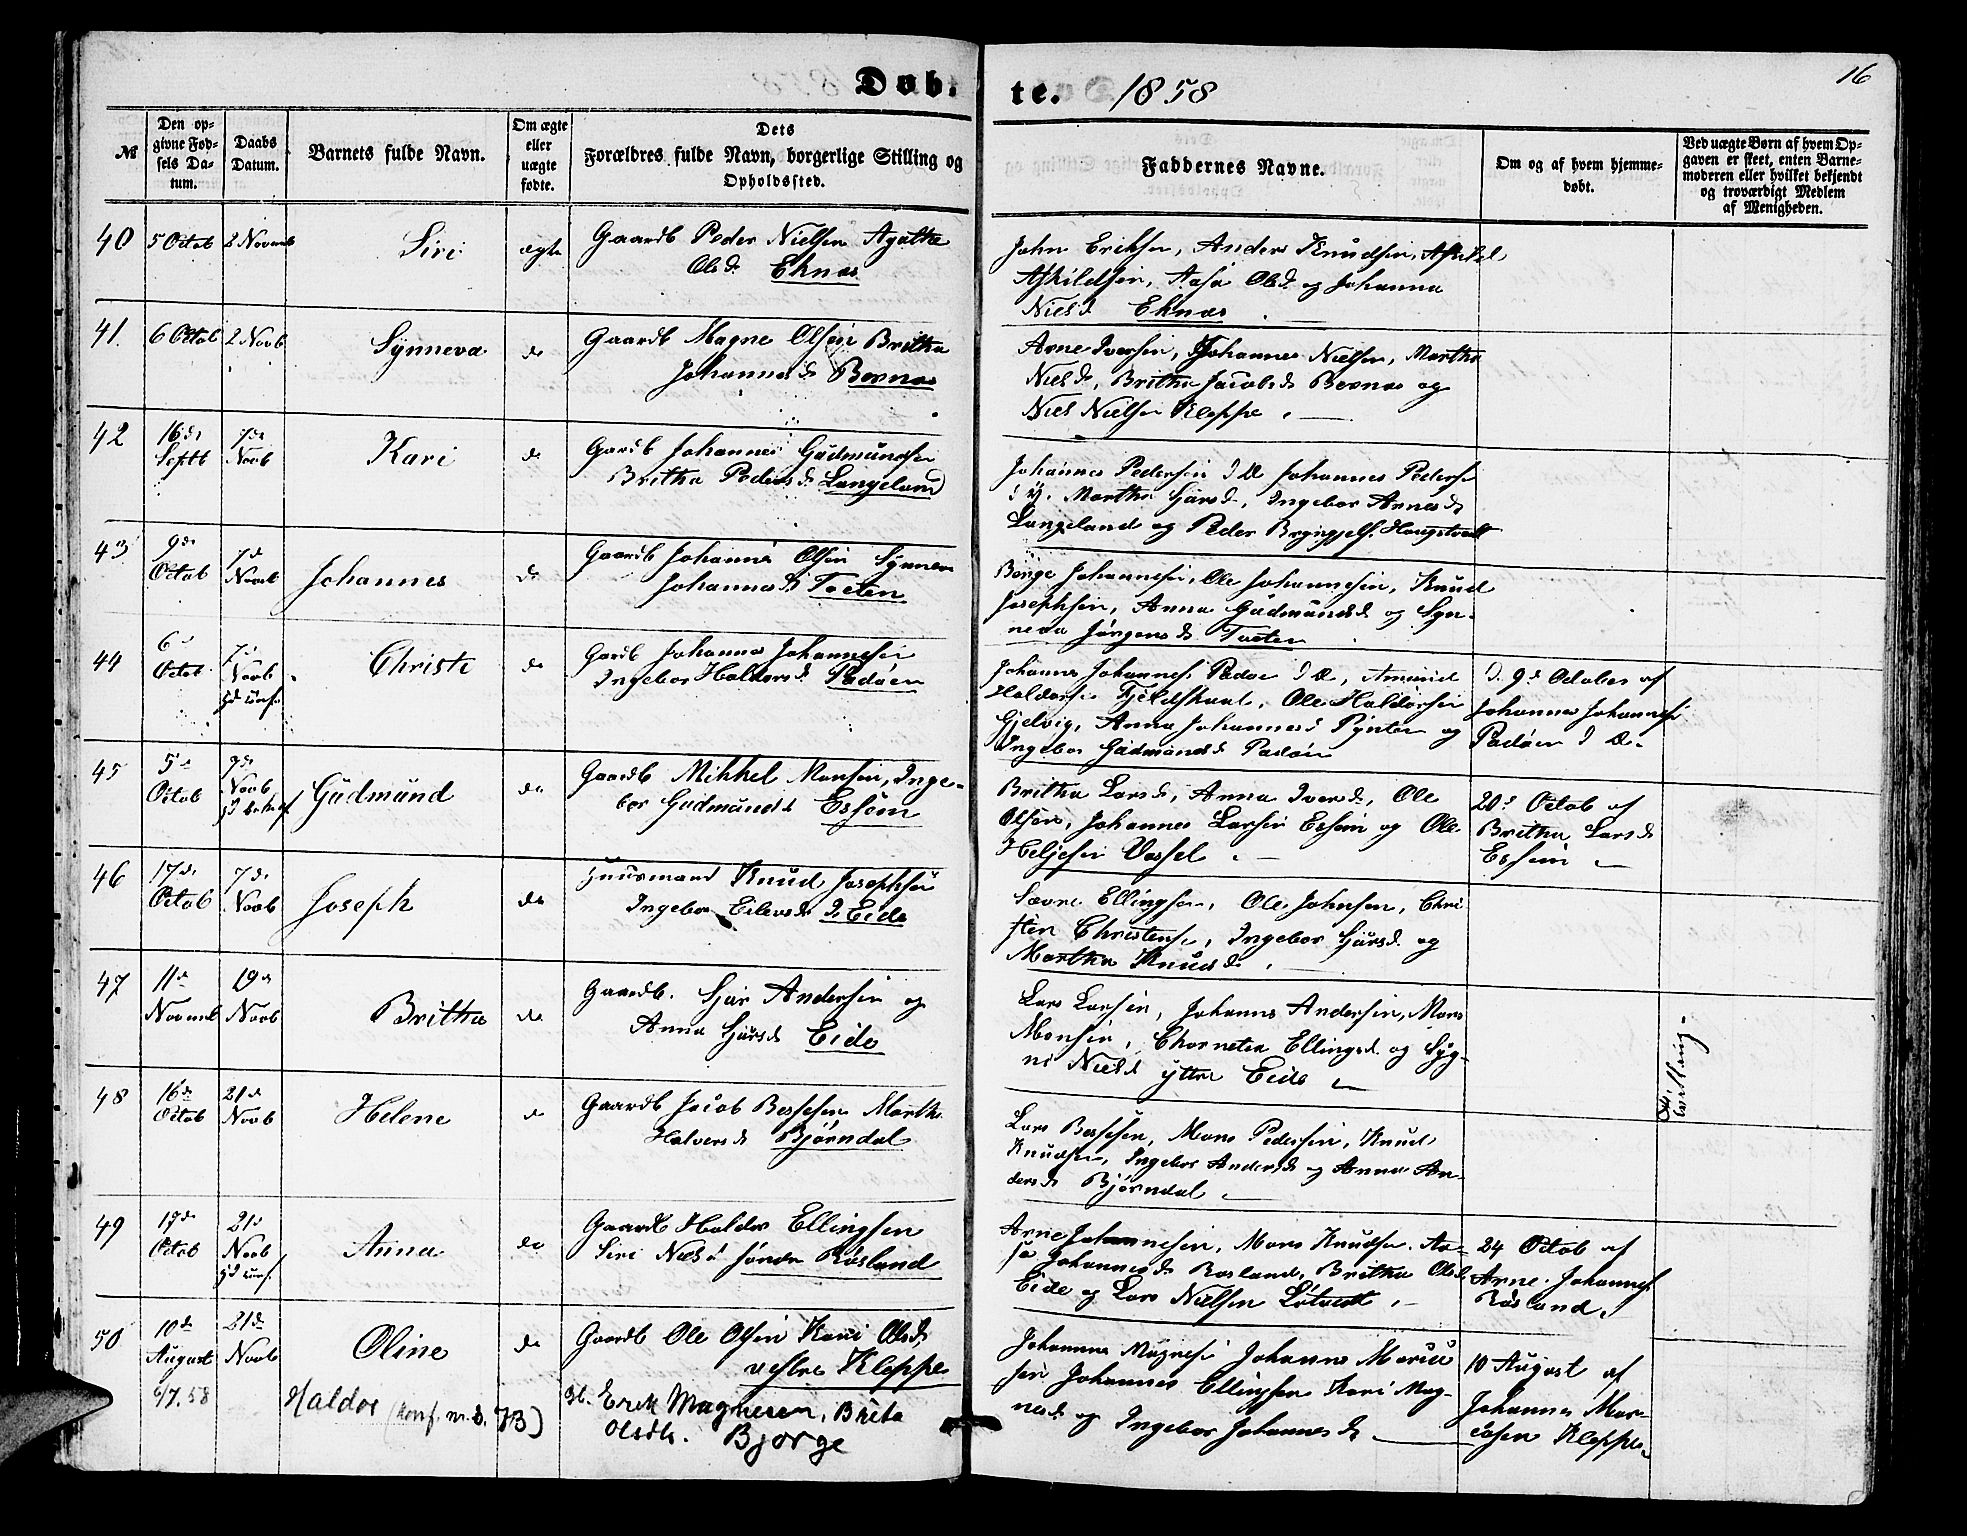 Døbte. 1858
16
№
Den opgivne Fødsels Datum.
Daabs Datum.
Barnets fulde Navn.
Om ægte eller uægte fødte.
Dets Forældres fulde Navn, borgerlige Stilling og Opholdssted.
Faddernes Navne.
Om og af hvem hjemmedøbt.
Ved uægte Børn af hvem Opgaven er skeet, enten Barnemoderen eller hvilket bekjendt og troværdigt Medlem af Menigheden.
40 5 Octob 2 Novemb Siri ægte Gaardb Peder Nielsen Agatha
Olsd Eknæs
John Eriksen, Anders Knudsen, Askild
Askildsen, Aasa Olsd og Johanna
Nielsd Eknæs
41. 6 Octob 2 Novb Synneva do Gaardb Magne Olsen Britha
Johannesd Bernæs
Arne Iversen, Johannes Nielsen, Martha
Nielsd, Britha Jacobsd Bernæs og
Niels Nielsen Kleppe
42 16de Septb 7de Novb Kari do Gaardb Johannes Gudmundsen
Britha Pedersd Langeland
Johannes Pedersen I Æ Johannes Peders
I Y. Martha Sjursd, Ingebor Arnesd
Langeland og Peder Brynjelfs. Haugstvedt
43 9de Octob 7d Novb Johannes do Gaardb Johannes Olsen Synneva
Johannesd Toften
Børge Johannesen, Ole Johannesen, Knud
Josephsen, Anna Gudmundsd og Syn-
neva Jørgensd Toften
44 6d Octob 7d Novb Christi do Gaardb Johannes Johannesen
Ingebor Haldorsd Padøen
Johannes Johannes. Padøe I Æ, Amund
Haldors Fjeldskaal, Ole Haldorsen
Gjelvig, Anna Johannesd Pynten og
Ingebor Gudmundsd Padøen
D. 9d October af
Johannes Johannesen
Padøen I Æ.
45 5d Octob 7de Novb Gudmund do Gaardb Mikkel Monsen, Inge-
bor Gudmundsd Essøen
Britha Larsd, Anna Iversd, Ole
Olsen, Johannes Larsen Essøen og Ole
Heljesen Vassel
20d Octob af
Britha Larsd
Essøen
46 17de Octob 7de Novb Joseph do Huusmand Knud Josephsen
Ingebor Eilersd I Eide
Sævre Ellingsen, Ole Johnsen, Chri
sten Christens., Ingebor Sjursd og
Martha Knudsd
47 11d Novemb 19de Novb Britha do Gaardb. Sjur Andersen og
Anna Sjursd Eide
Lars Larsen, Johannes Andersen, Mons
Monsen, Thorneta Ellingsd og Syg-
ni Nielsd ytre Eide
48 16de Octob 21d Novb Helene do Gaardb Jacob Bessesen Marth
Halversd Bjørndal
Lars Bessesen, Mons Pedersen, Knud
Knudsen, Ingebor Andersd og Anna An-
dersd Bjørndal
49 17de Octob 21d Novb Anna do Gaardb Haldor Ellingsen
Siri Nielsd søndre Røsland
Arne Johannesen, Mons Knudsen. Aa-
sa Johannesd Røsland, Britha Olsd
Eide og Lars Nielsen Løtvedt
24 Octob af
Arne Johannes.
Røsland
50 10de August 21de Novb Oline do Gaardb Ole Olsen Kari Olsd
vestre Kleppe
Johannes Magnes. Johannes Mariu
sen Johannes Ellingsen Kari Mag-
nesd og Ingebor Johannesd
10 August af
Johannes Mar-
iusen Kleppe
6/7.58 Haldor (Konf. nr. 6. 73) Erik Magnesen, Brita
Olsdtr. Bjørge